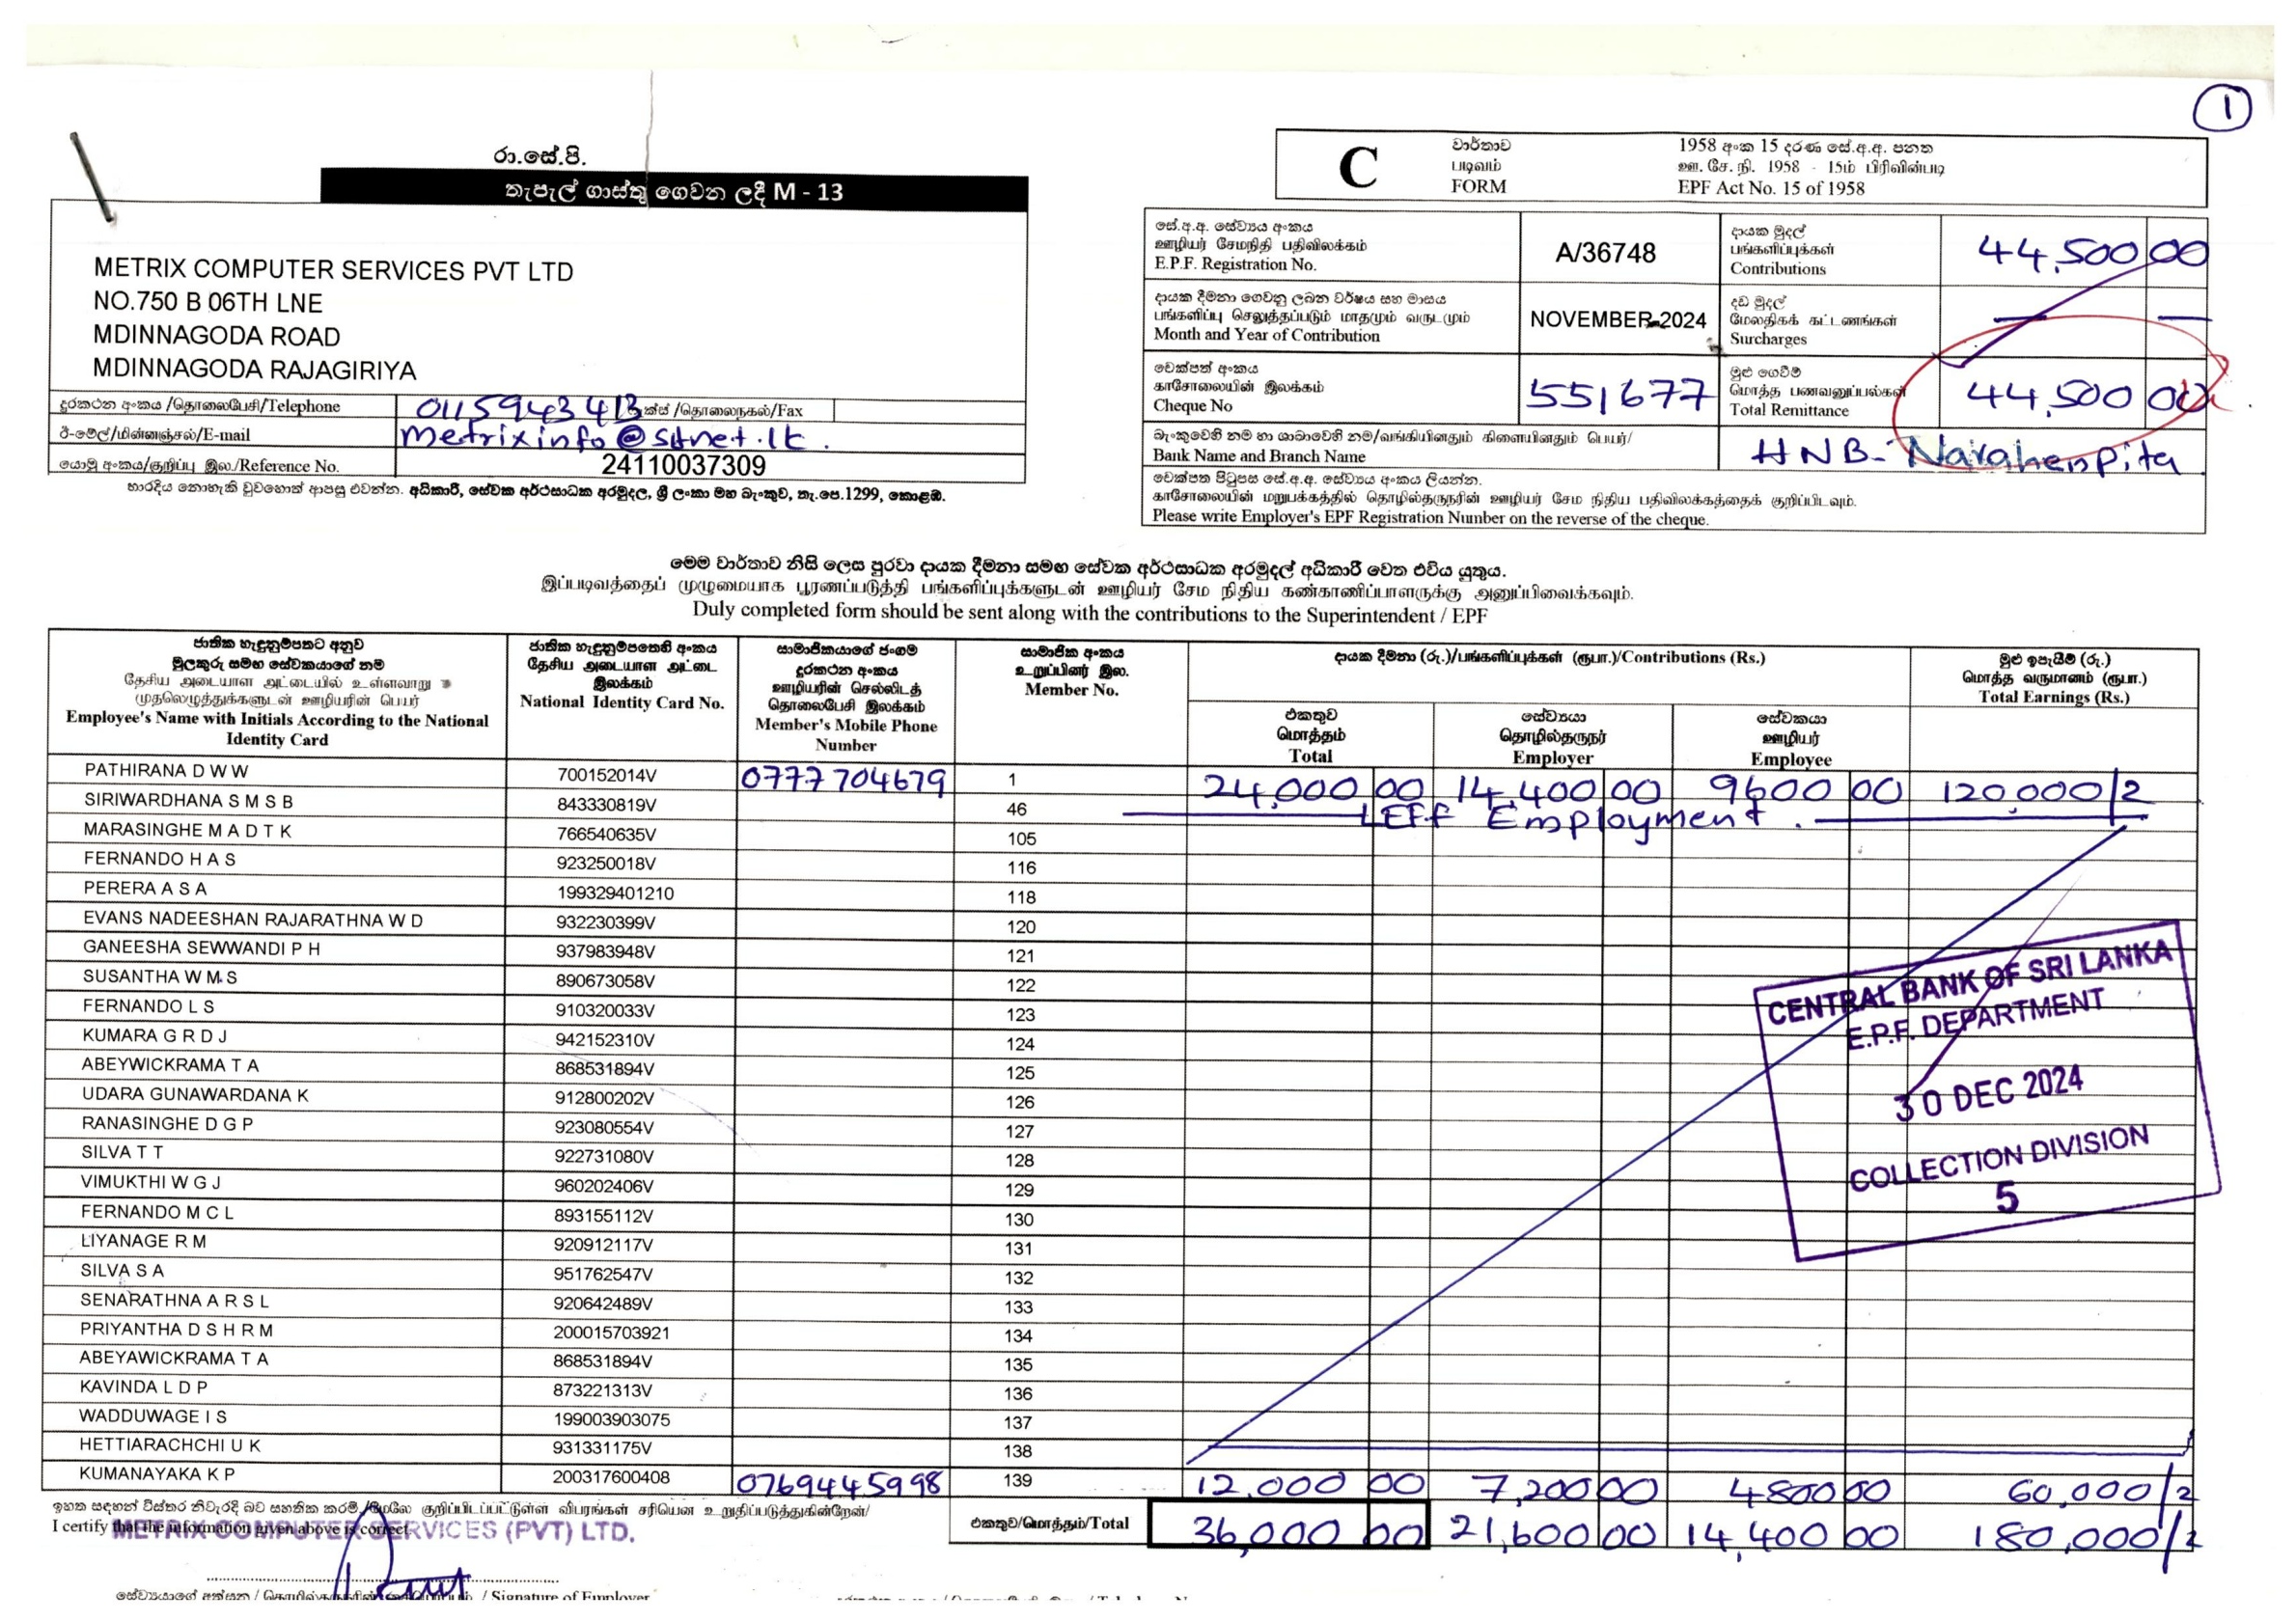 1
රා.සේ.පි.
තැපැල් ගාස්තු ගෙවන ලදී M - 13
METRIX COMPUTER SERVICES PVT LTD
NO.750 B 06TH LNE
MDINNAGODA ROAD
MDINNAGODA RAJAGIRIYA
දුරකථන අංකය /தொலைபேசி/Telephone 0115943413 ෆැක්ස් /தொலைநகல்/Fax
ඊ-මේල්/மின்னஞ்சல்/E-mail metrixinfo@sltnet.lk.
යොමු අංකය/குறிப்பு இல./Reference No. 24110037309
භාරදිය නොහැකි වුවහොත් ආපසු එවන්න. අධිකාරී, සේවක අර්ථසාධක අරමුදල, ශ්‍රී ලංකා මහ බැංකුව, තැ.පෙ.1299, කොළඹ.
C
වාර්තාව 1958 අංක 15 දරණ සේ.අ.අ. පනත
படிவம் ஊ.சே.நி. 1958 - 15ம் பிரிவின்படி
FORM EPF Act No. 15 of 1958
සේ.අ.අ. සේව්‍යය අංකය
ஊழியர் சேமநிதி பதிவிலக்கம்
E.P.F. Registration No. A/36748
දායක මුදල්
பங்களிப்புக்கள்
Contributions 44,500 00
දායක දීමනා ගෙවනු ලබන වර්ෂය සහ මාසය
பங்களிப்பு செலுத்தப்படும் மாதமும் வருடமும்
Month and Year of Contribution NOVEMBER-2024
දඩ මුදල්
மேலதிகக் கட்டணங்கள்
Surcharges — —
චෙක්පත් අංකය
காசோலையின் இலக்கம்
Cheque No 551677
මුළු ගෙවීම්
மொத்த பணவனுப்பல்கள்
Total Remittance 44,500 00
බැංකුවෙහි නම හා ශාඛාවෙහි නම/வங்கியினதும் கிளையினதும் பெயர்/
Bank Name and Branch Name HNB- Narahenpita
චෙක්පත පිටුපස සේ.අ.අ. සේව්‍යය අංකය ලියන්න.
காசோலையின் மறுபக்கத்தில் தொழில்தருநரின் ஊழியர் சேம நிதிய பதிவிலக்கத்தைக் குறிப்பிடவும்.
Please write Employer's EPF Registration Number on the reverse of the cheque.
මෙම වාර්තාව නිසි ලෙස පුරවා දායක දීමනා සමඟ සේවක අර්ථසාධක අරමුදල් අධිකාරී වෙත එවිය යුතුය.
இப்படிவத்தைப் முழுமையாக பூரணப்படுத்தி பங்களிப்புக்களுடன் ஊழியர் சேம நிதிய கண்காணிப்பாளருக்கு அனுப்பிவைக்கவும்.
Duly completed form should be sent along with the contributions to the Superintendent / EPF
ජාතික හැඳුනුම්පතට අනුව
මුලකුරු සමඟ සේවකයාගේ නම
தேசிய அடையாள அட்டையில் உள்ளவாறு
முதலெழுத்துக்களுடன் ஊழியரின் பெயர்
Employee's Name with Initials According to the National
Identity Card
ජාතික හැඳුනුම්පතෙහි අංකය
தேசிய அடையாள அட்டை
இலக்கம்
National Identity Card No.
සාමාජිකයාගේ ජංගම
දුරකථන අංකය
ஊழியரின் செல்லிடத்
தொலைபேசி இலக்கம்
Member's Mobile Phone
Number
සාමාජික අංකය
உறுப்பினர் இல.
Member No.
දායක දීමනා (රු.)/பங்களிப்புக்கள் (ரூபா.)/Contributions (Rs.)
එකතුව
மொத்தம்
Total
සේව්‍යයා
தொழில்தருநர்
Employer
සේවකයා
ஊழியர்
Employee
මුළු ඉපැයීම් (රු.)
மொத்த வருமானம் (ரூபா.)
Total Earnings (Rs.)
PATHIRANA D W W 700152014V 0777704679 1 24,000 00 14,400 00 9600 00 120,000/2
SIRIWARDHANA S M S B 843330819V 46 LEFF Employment.
MARASINGHE M A D T K 766540635V 105
FERNANDO H A S 923250018V 116
PERERA A S A 199329401210 118
EVANS NADEESHAN RAJARATHNA W D 932230399V 120
GANEESHA SEWWANDI P H 937983948V 121
SUSANTHA W M S 890673058V 122
FERNANDO L S 910320033V 123
KUMARA G R D J 942152310V 124
ABEYWICKRAMA T A 868531894V 125
UDARA GUNAWARDANA K 912800202V 126
RANASINGHE D G P 923080554V 127
SILVA T T 922731080V 128
VIMUKTHI W G J 960202406V 129
FERNANDO M C L 893155112V 130
LIYANAGE R M 920912117V 131
SILVA S A 951762547V 132
SENARATHNA A R S L 920642489V 133
PRIYANTHA D S H R M 200015703921 134
ABEYAWICKRAMA T A 868531894V 135
KAVINDA L D P 873221313V 136
WADDUWAGE I S 199003903075 137
HETTIARACHCHI U K 931331175V 138
KUMANAYAKA K P 200317600408 0769445998 139 12,000 00 7,200 00 4800 00 60,000/2
CENTRAL BANK OF SRI LANKA
E.P.F. DEPARTMENT
30 DEC 2024
COLLECTION DIVISION
5
ඉහත සඳහන් විස්තර නිවැරදි බව සහතික කරමි./மேலே குறிப்பிடப்பட்டுள்ள விபரங்கள் சரியென உறுதிப்படுத்துகின்றேன்/
I certify that the information given above is correct
METRIX COMPUTER SERVICES (PVT) LTD.
එකතුව/மொத்தம்/Total 36,000 00 21,600 00 14,400 00 180,000/2
සේව්‍යයාගේ අත්සන / / Signature of Employer